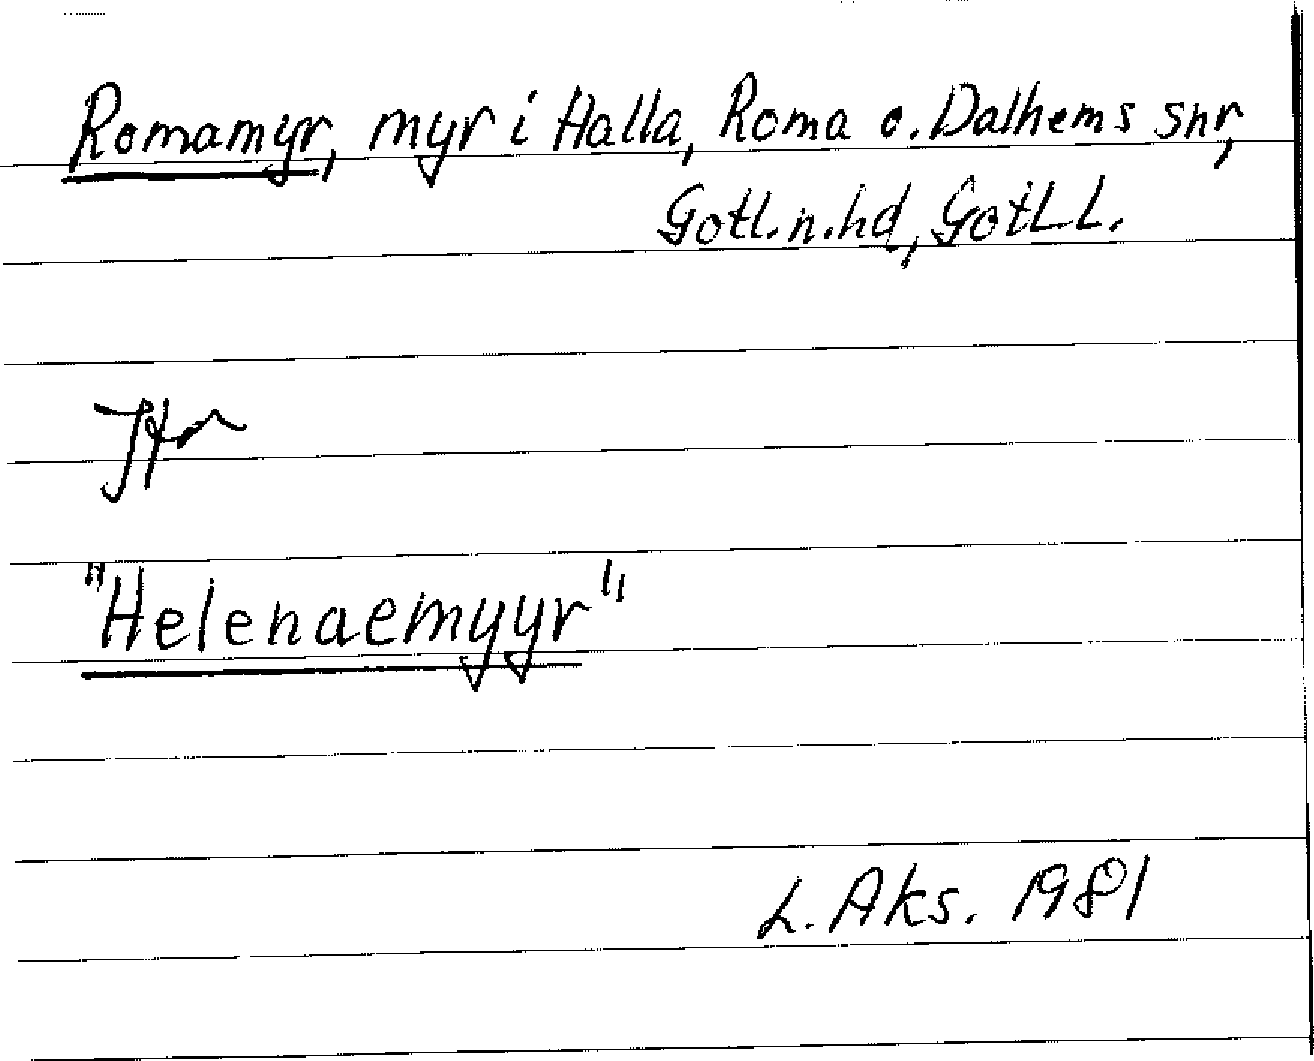 Romamyr, myr i Halla, Roma o. Dalhems snr,
Gotl. n. hd, Gotl L.
Jfr
"Helenaemyyr"
L. Aks. 1981